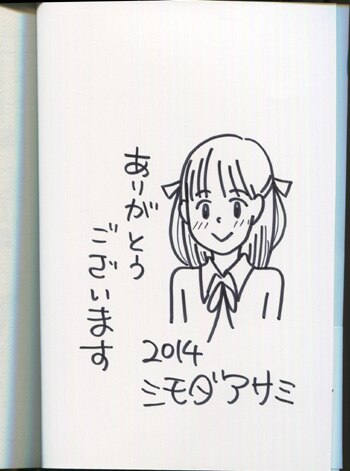 ありがとう
ございます
2014
ミモダアサミ